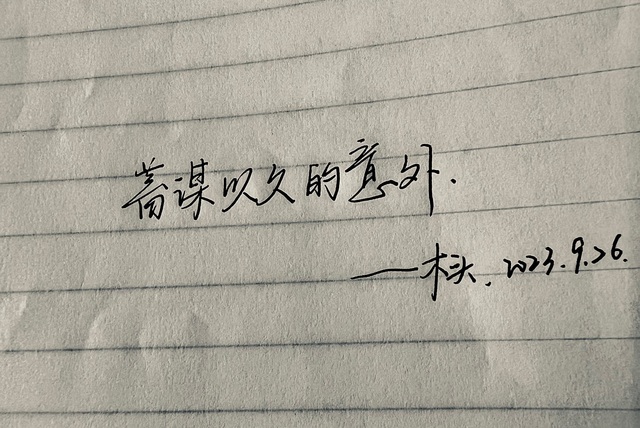 蓄谋以久的意外.
——木头. 2023.9.26.